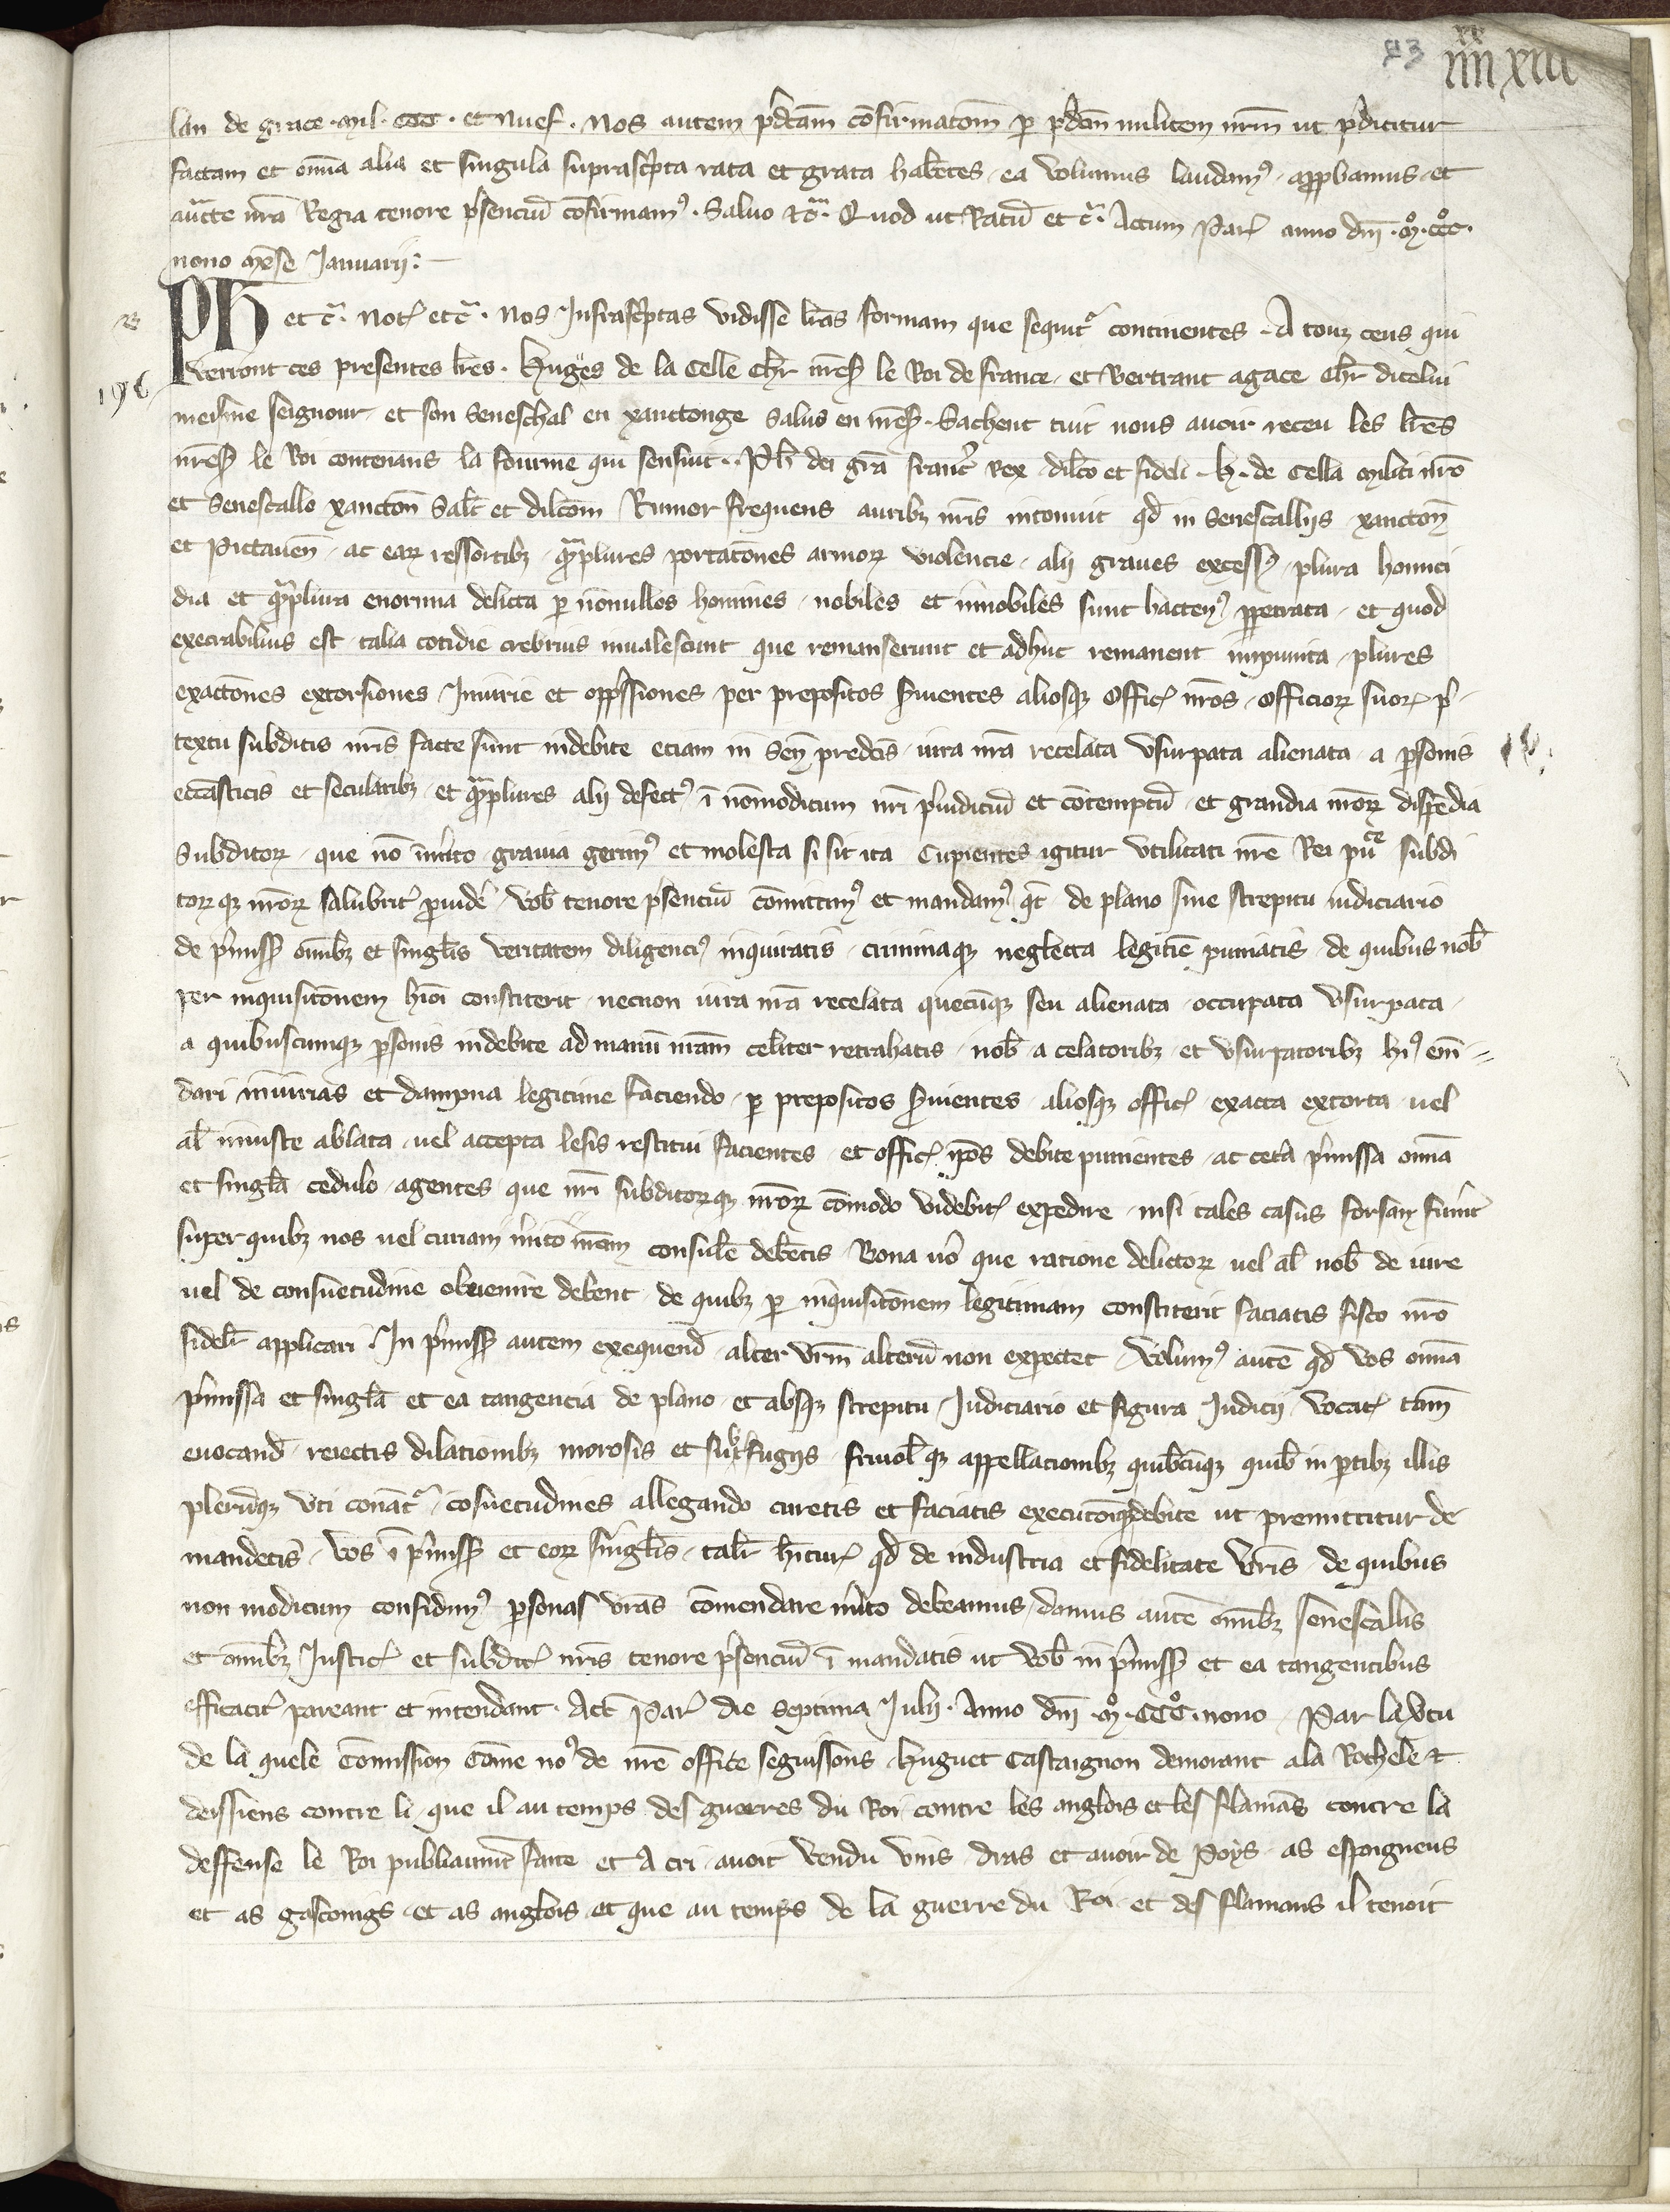 93 iiiixx xiii
lan de grace .mil. CCC . et nuef . Nos autem p̃dcãm cõfirmatoẽm p̱ p̃dcm̃ militem nr̃m ut p̃dicitur
factam et om̃ia alia et singula suprasc̃pta rata et grata habẽtes ea volumus laudamꝰ . app̱bamus et
auctẽ nr̃a Regia tenore p̃senciũ cõfirmamꝰ . Saluo ⁊cᷓ . Quod ut Ratũ et cᷓ . Actum Par̃ anno dñi .mº.ccc.º
nono mẽse Januarij :
Ph et cᷓ . Not̃ et cᷓ . nos Infrasc̃ptas vidisse lr̃as formam que sequit᷑ continentes . A touz ceus qui
verront ces presentes lr̃es . Hugẽs de la Celle chr̃ nr̃eſ le Roi de france . et Bertrant agace chr̃ dicelui
meisme seignour et son Seneschal en xanctonge salus en nr̃eſ . Sachent tuit nous auoir receu les lr̃es
nr̃eſ le Roi contenans la fourme qui sensuit . Ph̃ dei gr̃a franc̃ Rex dilc̃o et fideli . H . de Cella militi nr̃o
et Senescallo xanctoñ Salt̃ et dilcõm Rumor frequens auribꝫ nr̃is intonuit qd̃ in Senescallijs xanctoñ
et Pictaueñ . ac eaꝝ ressortibꝫ . qᷓmplures portacõnes armoꝝ violencie . alij graues excessꝰ . plura homici
dia et qᷓmplura enormia delicta p̱ nõnullos homines nobiles et innobiles sunt hactenꝰ p̱petrata . et quod
execrabilius est talia cotidie crebrius inualescunt que remanserunt et adhuc remanent impunita . plures
exactõnes extorsiones Iniurie et opp̃ssiones per prepositos s̃uientes aliosqꝫ Offic̃ nr̃os . Officioꝝ suoꝝ p̃
textu subditis nr̃is facte sunt indebite eciam in Señ predcĩs iura nr̃a recelata vsurpata alienata . a p̱sonis
eccãsticis et secularibꝫ . et qᷓmplures alij defectꝰ ĩ nõmodicum nr̃i p̃iudiciũ et cõtemptũ . et grandia nr̃oꝝ dispẽdia
Subditoꝝ . que nõ im̃ito grauia gerimꝰ et molesta si sit ita Cupientes igitur vtilitati nr̃e Rei pũce subdi
toꝝqꝫ nr̃oꝝ salubrit᷑ p̱uidẽ vob̃ tenore p̃senciũ cõmittimꝰ et mandamꝰ qt̃ de plano sine strepitu iudiciario
de p̃missꝭ om̃ibꝫ et singl̃is veritatem diligenciꝰ inquiratis . criminaqꝫ neglecta legitiẽ puniatis de quibus nob̃
per inquisitõnem hm̃oi constiterit . necnon iura nr̃a recelata quecũqꝫ seu alienata . occupata vsurpata
a quibuscumqꝫ p̱sonis indebite ad manũ nr̃am celiter retrahatis . nob̃ a celatoribꝫ et vsurpatoribꝫ hiꝰ em̃
dari iniurias et dampna legitime faciendo . p̱ prepositos s̃uientes aliosqꝫ offic̃ exacta extorta vel
al̃ iniuste ablata . uel accepta lesis restitui facientes . et offic̃ ip̃os debite punientes . ac cetã p̃missa om̃ia
et singl̃a . cedulo . agentes que nr̃i subditoꝝqꝫ nr̃oꝝ cõmodo videbit̃ expedire . nisi tales casus forsan fũint
super quibꝫ nos uel curiam m̃ito nr̃am consulẽ debẽtis . Bona uõ que ratione delictoꝝ uel al̃ nob̃ de iure
uel de consuetudine obuenire debent . de quibꝫ p̱ inquisitõnem legitimam constiterit faciatis fisco nr̃o
fidelr̃ applicari . In p̃missꝭ autem exequend̃ . alter vr̃m alterũ non expectet . Volumꝰ autẽ qd̃ vos om̃ia
p̃missa et singl̃a et ea tangencia de plano et absqꝫ strepitu Judiciario et figura Judicij . vocat̃ tam̃
euocand̃ . reiectis dilacionibꝫ morosis et subt̃fugijs . friuol̃qꝫ appellacionibꝫ quibꝰcũqꝫ . quib̃ in p̱tibꝫ illis
plerũqꝫ vti conãt᷑ . cõsuetudines allegando curetis et faciatis executõniqꝫ debite ut premittitur de
mandetis . Vos ĩ p̃missꝭ et eoꝝ singl̃is . talr̃ hĩturꝭ qd̃ de industria et fidelitate vr̃is . de quibus
non modicum confidimꝰ p̱sonas vr̃as cõmendare m̃ito debeamus . damus autẽ om̃ibꝫ senescallis
et om̃ibꝫ Justic̃ et subdit̃ nr̃is tenore p̃senciũ ĩ mandatis ut vob̃ in p̃missꝭ et ea tangentibus
efficacit᷑ pareant et intendant . Act̃ Par̃ die septima Julij . Anno dñi .mº. CCCº . nono . Par la vtu
de la quele Cõmission Cõme noꝰ de nr̃e office seguissons . Huguet Castaignon demorant a la Rochele ⁊
deissiens contre li . que il au temps des guerres du Roi contre les anglois et les flamãs contre la
deffense le Roi publiaumẽt faite et a cri . auoit vendu vins . dras et auoir de Poys . as espaigneus
et as gascoings . et as anglois et que au temps de la guerre du Roi . et des flamans il tenoit
196